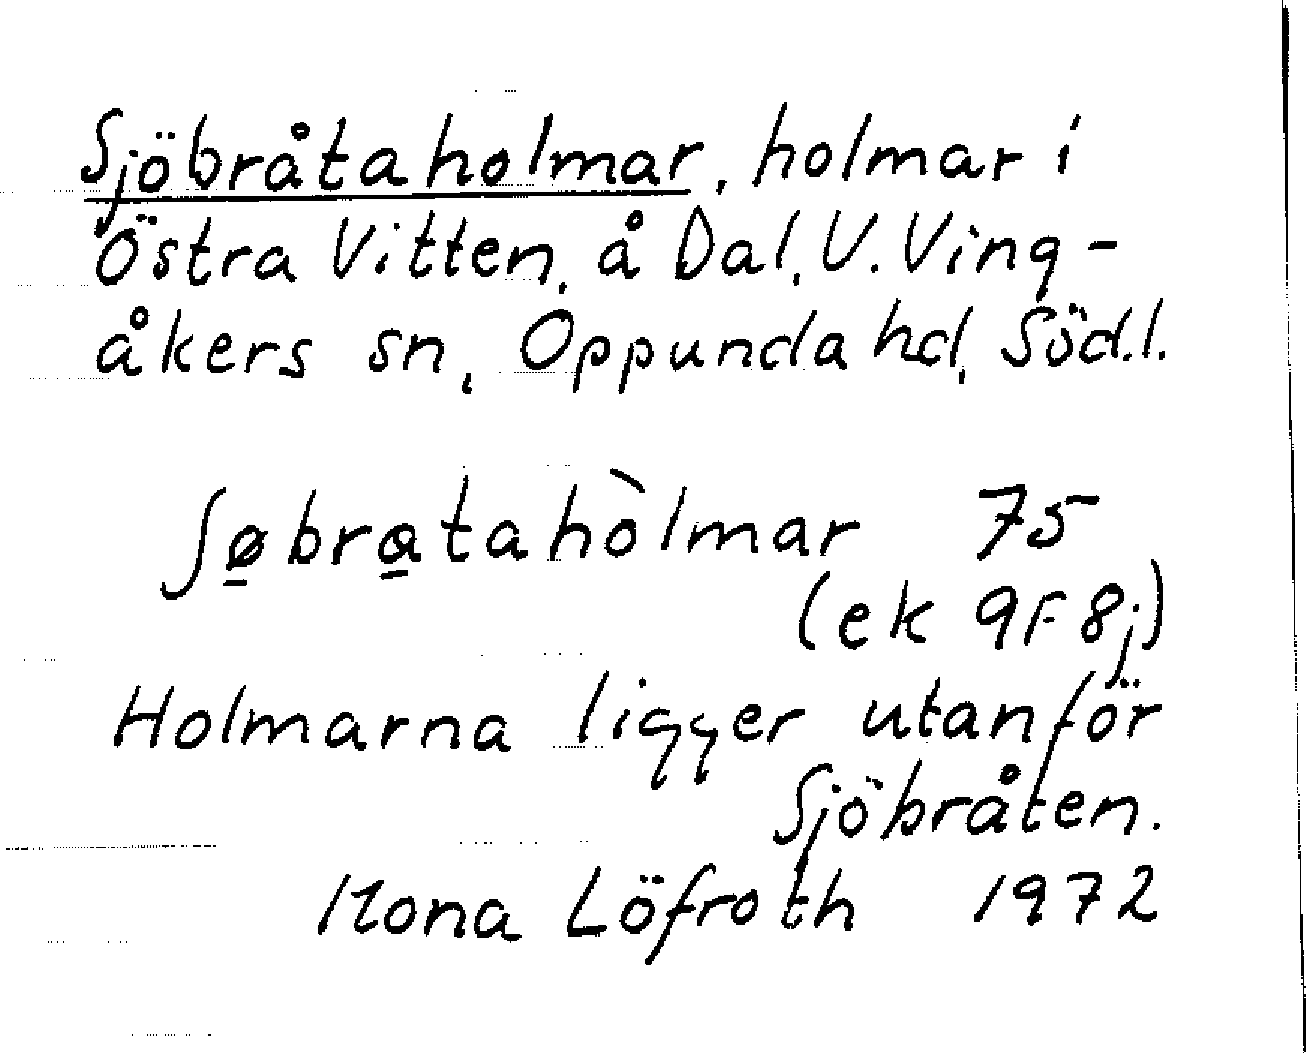 Sjöbråtaholmar, holmar i
Östra Vitten, å Dal, V. Ving-
åkers sn, Oppunda hd, Södl.
ʃø̱bra̱tahòlmar 75
(ek 9F 8j)
Holmarna ligger utanför
Sjöbråten.
Ilona Löfroth 1972